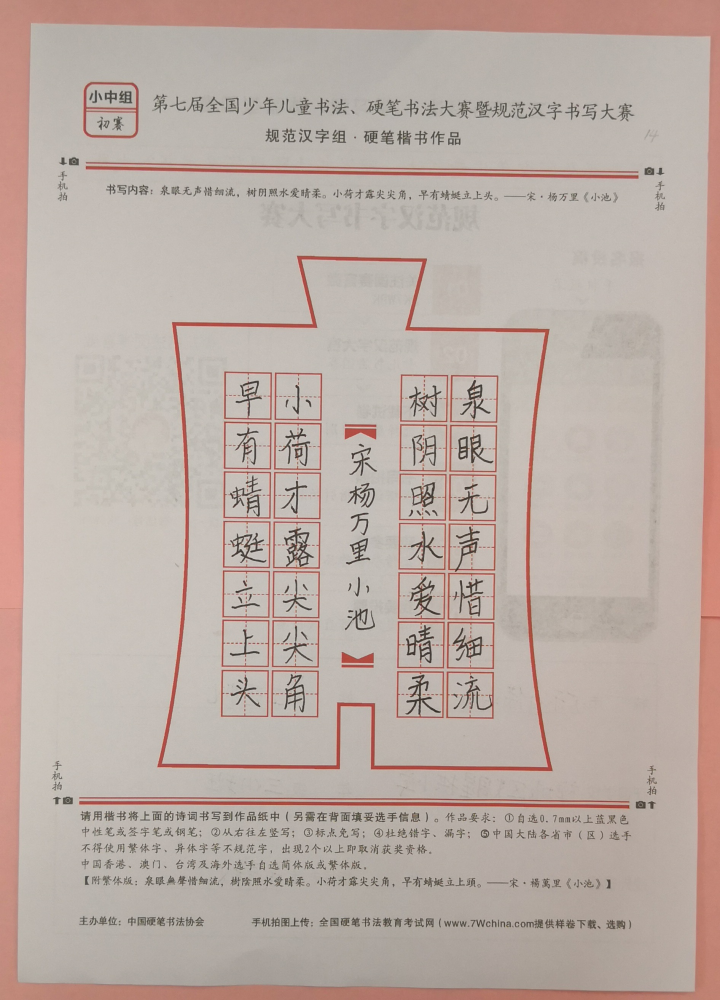 小中组
初赛
第七届全国少年儿童书法、硬笔书法大赛暨规范汉字书写大赛
规范汉字组·硬笔楷书作品
14
手机拍
手机拍
书写内容：泉眼无声惜细流，树阴照水爱晴柔。小荷才露尖尖角，早有蜻蜓立上头。——宋·杨万里《小池》
泉眼无声惜细流
树阴照水爱晴柔
宋杨万里小池
小荷才露尖尖角
早有蜻蜓立上头
手机拍
手机拍
请用楷书将上面的诗词书写到作品纸中（另需在背面填妥选手信息）。作品要求：①自选0.7mm以上蓝黑色
中性笔或签字笔或钢笔；②从右往左竖写；③标点免写；④杜绝错字、漏字；⑤中国大陆各省市（区）选手
不得使用繁体字、异体字等不规范字，出现2个以上即取消获奖资格。
中国香港、澳门、台湾及海外选手自选简体版或繁体版。
【附繁体版：泉眼無聲惜細流，樹陰照水愛晴柔。小荷才露尖尖角，早有蜻蜓立上頭。——宋·楊萬里《小池》】
主办单位：中国硬笔书法协会
手机拍图上传：全国硬笔书法教育考试网（www.7Wchina.com提供样卷下载、选购）